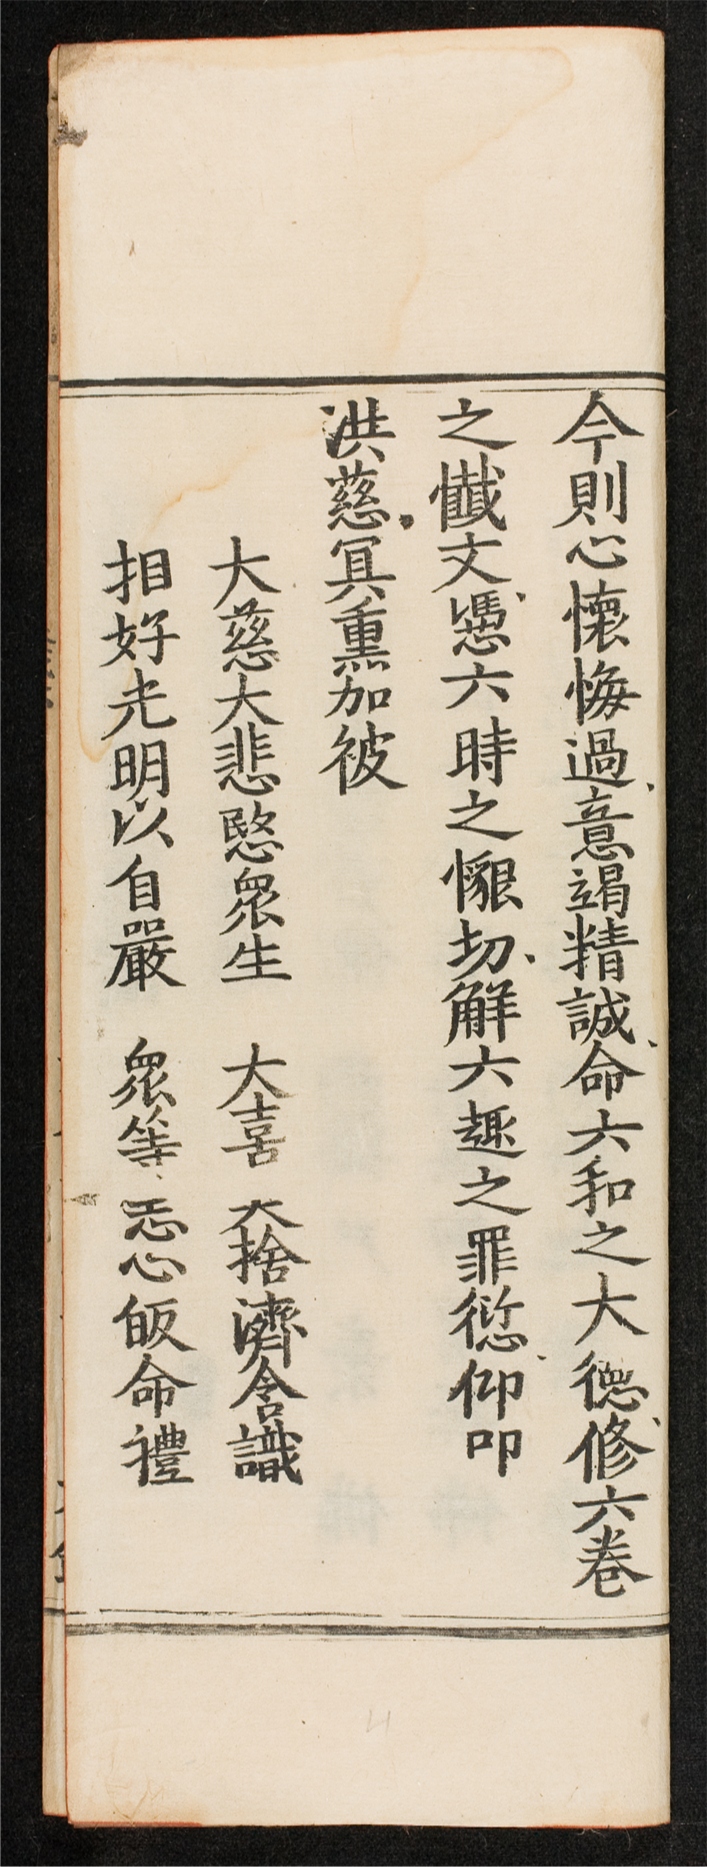 今則心懷悔過意竭精誠命六和之大德修六卷
之懺文慿六時之懇切解六趣之罪愆仰叩
洪慈冥熏加被
大慈大悲愍衆生　大喜大捨濟含識
相好光明以自嚴　衆等志心皈命禮